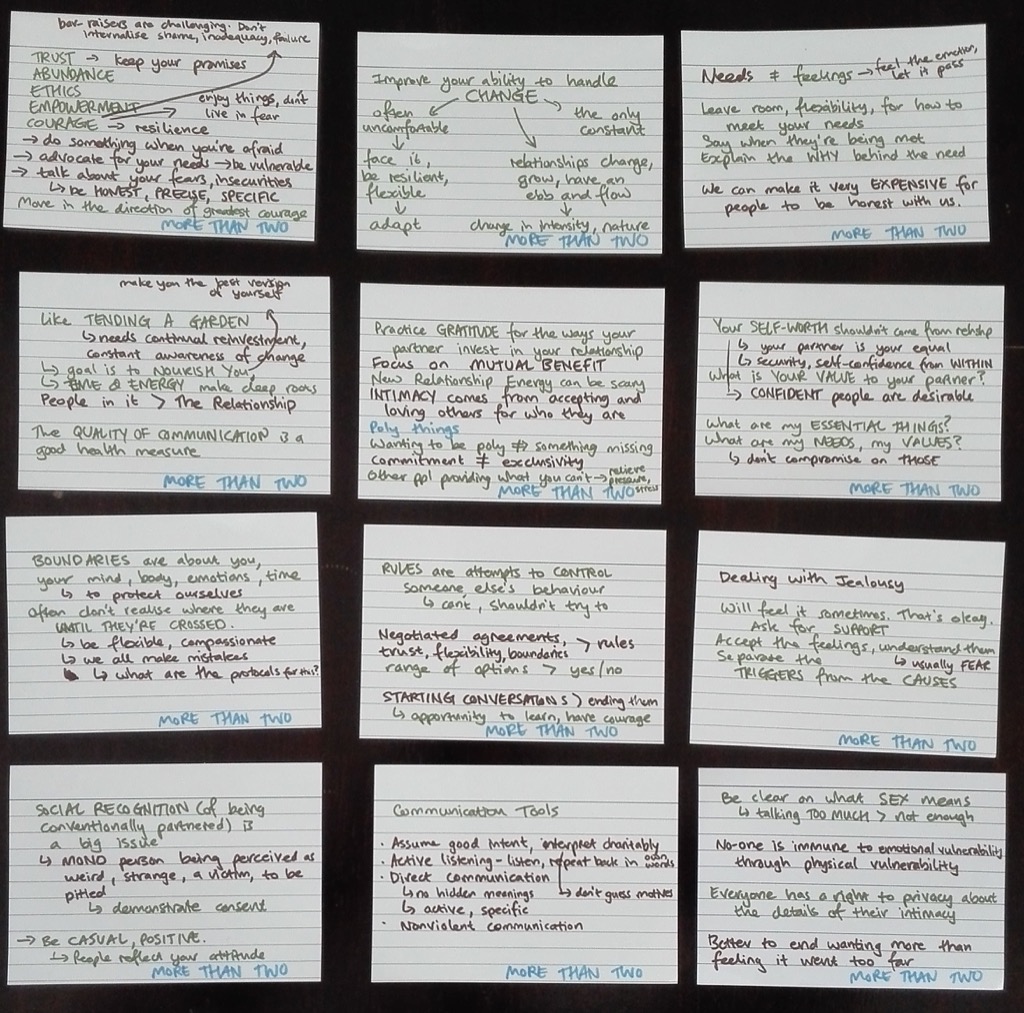 bar-raisers are challenging. Don't
internalise shame, inadequacy, failure
TRUST → keep your promises
ABUNDANCE
ETHICS
EMPOWERMENT → enjoy things, don't
live in fear
COURAGE → resilience
→ do something when you're afraid
→ advocate for your needs → be vulnerable
→ talk about your fears, insecurities
↳ be HONEST, PRECISE, SPECIFIC
Move in the direction of greatest courage
MORE THAN TWO
Improve your ability to handle
CHANGE
often
uncomfortable
↓
face it,
be resilient,
flexible
↓
adapt
the only
constant
relationships change,
grow, have an
ebb and flow
↓
change in intensity, nature
MORE THAN TWO
Needs ≠ feelings → feel the emotion,
let it pass
Leave room, flexibility, for how to
meet your needs
Say when they're being met
Explain the WHY behind the need
We can make it very EXPENSIVE for
people to be honest with us.
MORE THAN TWO
make you the best version
of yourself
Like TENDING A GARDEN
↳ needs continual reinvestment,
constant awareness of change
↳ goal is to NOURISH You
↳ TIME & ENERGY make deep roots
People in it > The Relationship
The QUALITY OF COMMUNICATION is a
good health measure
MORE THAN TWO
Practice GRATITUDE for the ways your
partner invest in your relationship
Focus on MUTUAL BENEFIT
New Relationship Energy can be scary
INTIMACY comes from accepting and
loving others for who they are
Poly things
Wanting to be poly ≠> something missing
commitment ≠ exclusivity
Other ppl providing what you can't → relieve
pressure,
stress
MORE THAN TWO
Your SELF-WORTH shouldn't come from reltshp
↳ your partner is your equal
↳ security, self-confidence from WITHIN
What is YOUR VALUE to your partner?
↳ CONFIDENT people are desirable
What are my ESSENTIAL THINGS?
What are my NEEDS, my VALUES?
↳ don't compromise on THOSE
MORE THAN TWO
BOUNDARIES are about you,
your mind, body, emotions, time
↳ to protect ourselves
Often don't realise where they are
UNTIL THEY'RE CROSSED.
↳ be flexible, compassionate
↳ we all make mistakes
↳ what are the protocols for this?
MORE THAN TWO
RULES are attempts to CONTROL
someone else's behaviour
↳ can't, shouldn't try to
Negotiated agreements, > rules
trust, flexibility, boundaries
range of options > yes/no
STARTING CONVERSATIONS > ending them
↳ opportunity to learn, have courage
MORE THAN TWO
Dealing with Jealousy
Will feel it sometimes. That's okay.
Ask for SUPPORT
Accept the feelings, understand them
↳ usually FEAR
Separate the
TRIGGERS from the CAUSES
MORE THAN TWO
SOCIAL RECOGNITION (of being
conventionally partnered) is
a big issue
↳ MONO person being perceived as
weird, strange, a victim, to be
pitied
↳ demonstrate consent
→ Be CASUAL, POSITIVE.
↳ People reflect your attitude
MORE THAN TWO
Communication Tools
· Assume good intent, interpret charitably
· Active listening - listen, repeat back in own
words
· Direct communication
↳ no hidden meanings ↳ don't guess motives
↳ active, specific
· Nonviolent communication
MORE THAN TWO
Be clear on what SEX means
↳ talking TOO MUCH > not enough
No-one is immune to emotional vulnerability
through physical vulnerability
Everyone has a right to privacy about
the details of their intimacy
Better to end wanting more than
feeling it went too far
MORE THAN TWO